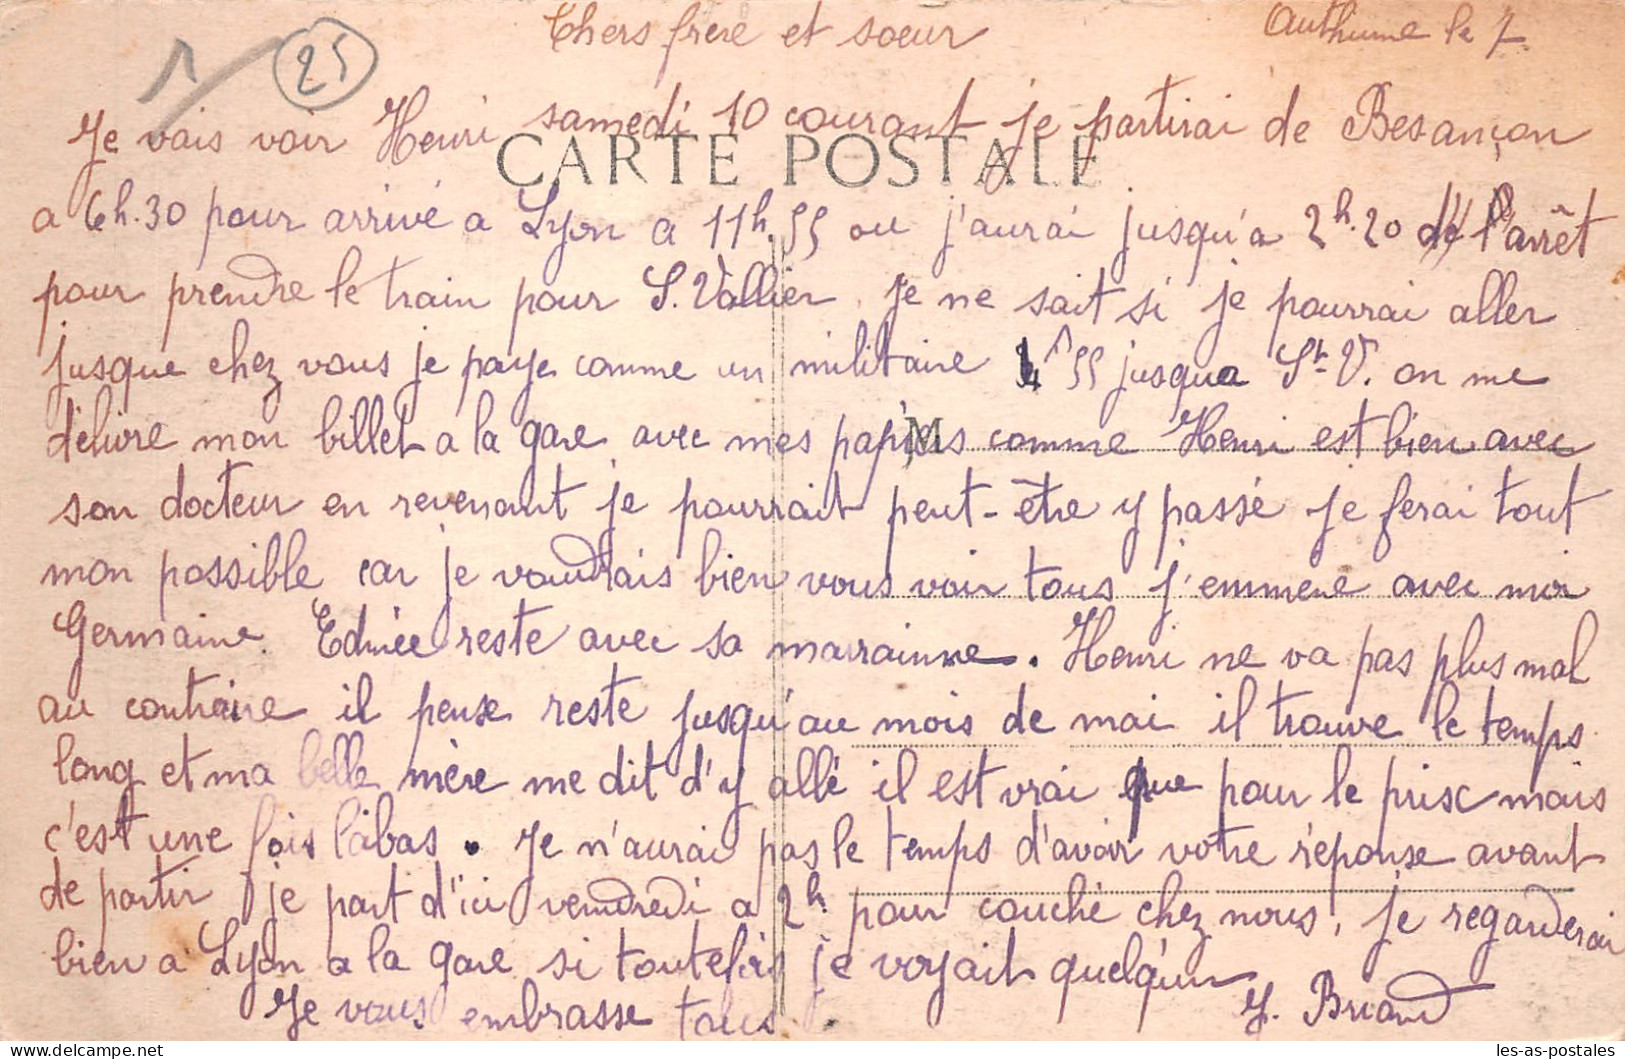 25
Chers frere et soeur
Authume le 7
Je vais voir Henri samedi 10 courant je partirai de Besançon
CARTE POSTALE
a 6h.30 pour arrivé a Lyon a 11h.55 ou j'aurai jusqu'a 2h.20 de l'arrêt
pour prendre le train pour S. Vallier. Je ne sait si je pourrai aller
jusque chez vous je paye comme un militaire 4f55 jusqua St V. on me
délivre mon billet a la gare avec mes papiers comme Henri est bien avec
M
son docteur en revenant je pourrait peut-être y passé je ferai tout
mon possible car je voudrais bien vous voir tous j'emmene avec moi
Germaine. Edmée reste avec sa marrainne. Henri ne va pas plus mal
au contraire il pense reste jusqu'au mois de mai il trouve le temps
long et ma belle mère me dit d'y allé il est vrai que pour le prix mais
c'est une fois làbas. Je n'aurai pas le temps d'avoir votre réponse avant
de partir je part d'ici vendredi a 2h. pour couché chez nous, je regarderai
bien a Lyon a la gare si toutefois je voyait quelqu'un
Je vous embrasse tous
J. Briand
les-as-postales
delcampe.net